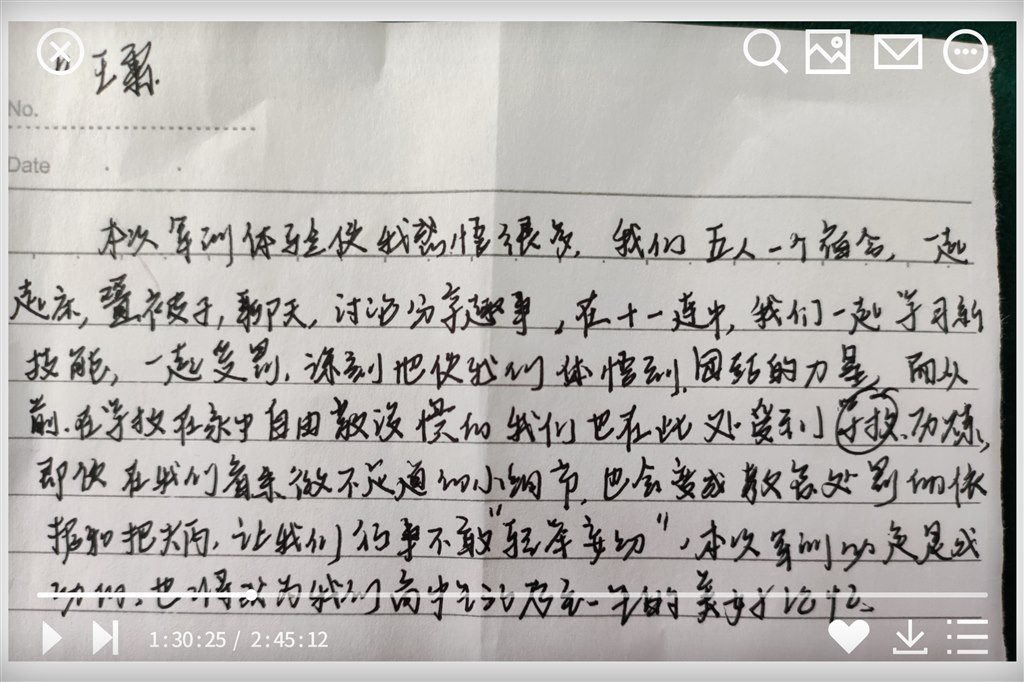 王
No.
Date
本次军训体验使我感悟很多，我们五人一个宿舍，一起
起床，叠被子，聊天，讨论分享趣事，在十一连中，我们一起学习新
技能，一起受罚，深刻地使我们体悟到团结的力量，而从
前在学校在家中自由散漫惯的我们也在此处受到学校
即使在我们看来微不足道的小细节，也会变成教官处罚的依
据和把柄，让我们行事不敢"轻举妄动"，本次军训
我们高中生活乃至一生的美好记忆。
1:30:25 / 2:45:12